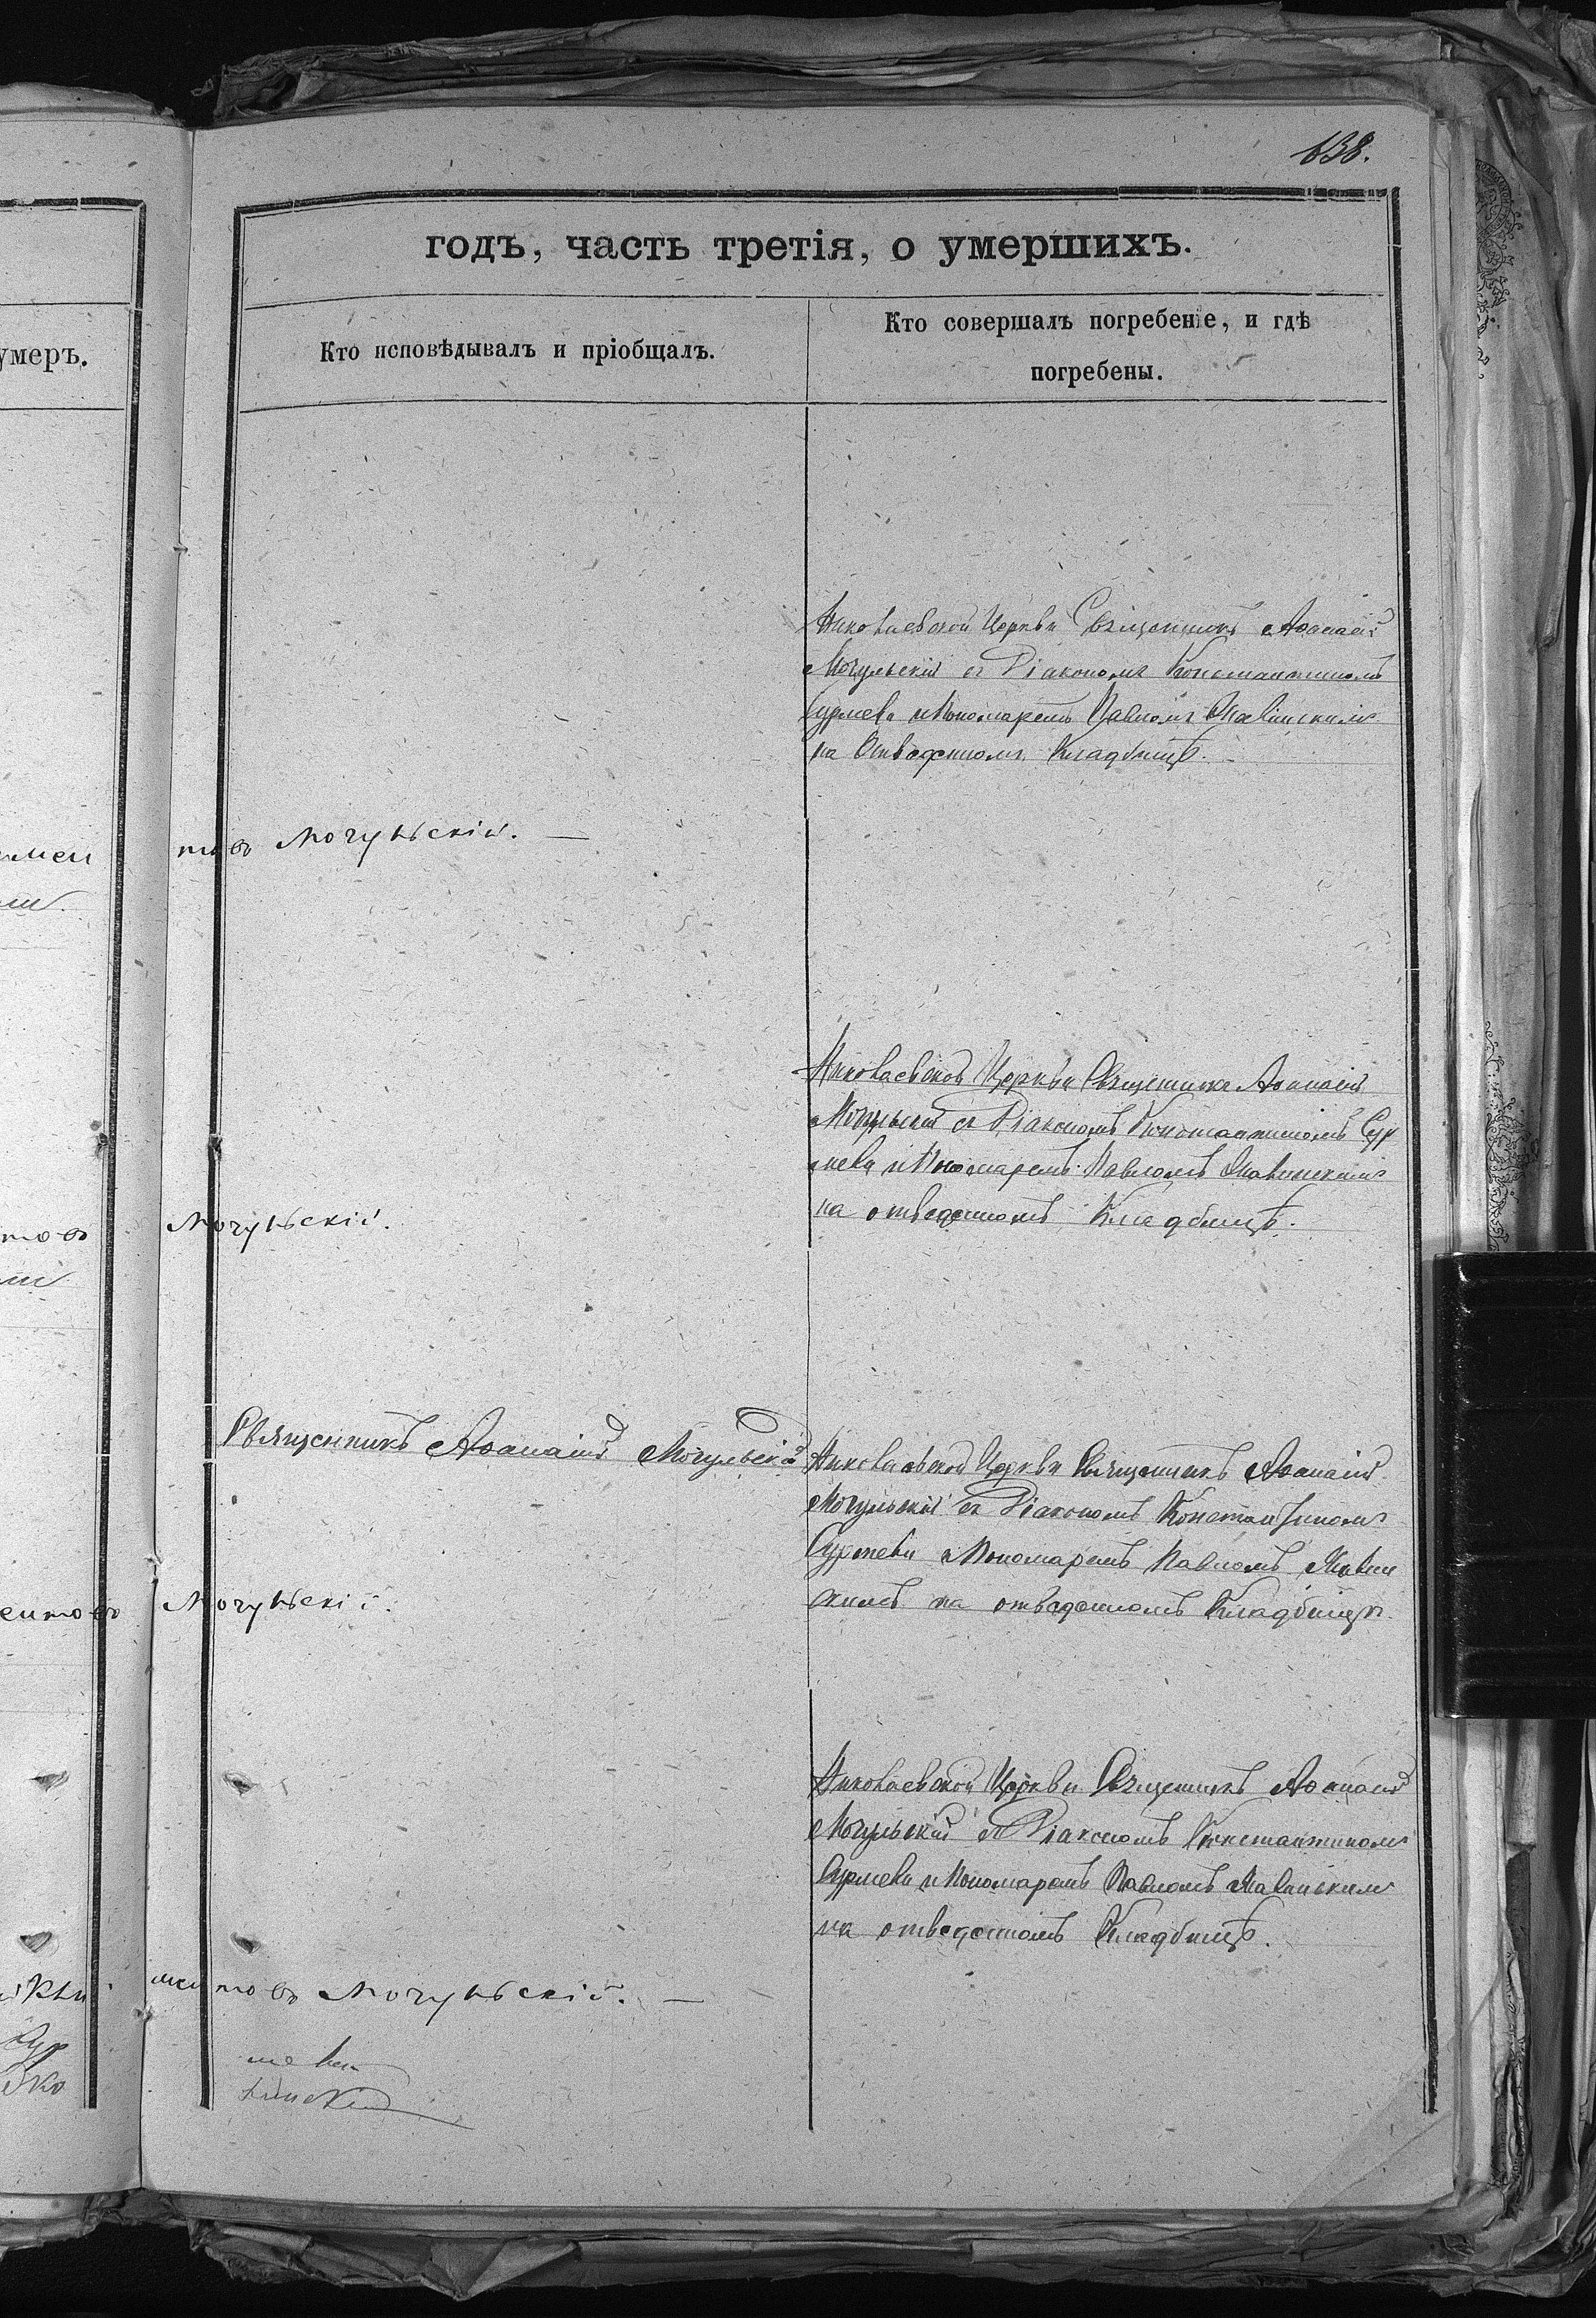 638.
годъ, часть третія, о умершихъ.
умеръ.
Кто исповѣдывалъ и пріобщалъ.
Кто совершалъ погребеніе, и гдѣ
погребены.
Николаевской Церкви Священникъ Аѳанасій
Могульскій съ Діакономъ Константиномъ
и Пономаремъ Павломъ
на Отведенномъ Кладбищѣ.
Могульскій. —
Николаевской Церкви Священникъ Аѳанасій
Могульскій съ Діакономъ Константиномъ Сур
мева и Пономаремъ Павломъ
на отведенномъ Кладбищѣ.
Могульскій.
Священникъ Аѳанасій Могульскій
Николаевской Церкви Священникъ Аѳанасій
Могульскій съ Діакономъ Константиномъ
и Пономаремъ Павломъ
скимъ на отведенномъ Кладбищѣ.
Могульскій.
Николаевской Церкви Священникъ Аѳанасій
Могульскій съ Діакономъ Константиномъ
и Пономаремъ Павломъ
на отведенномъ Кладбищѣ.
Могульскій. —